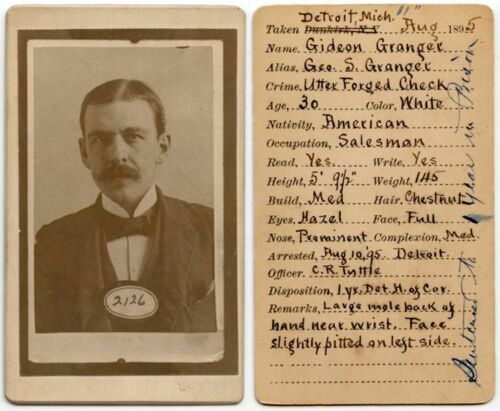 2126
Detroit, Mich. "1"
Taken Dunkirk, N.Y. Aug 1895
Name, Gideon Granger
Alias, Geo. S. Granger
Crime, Utter Forged Check
Age, 30 Color, White
Nativity, American
Occupation, Salesman
Read, Yes Write, Yes
Height, 5' 9½" Weight, 145
Build, Med Hair, Chestnut
Eyes, Hazel Face, Full
Nose, Prominent Complexion, Med
Arrested, Aug 10, 95 Detroit
Officer, C.R. Tuttle
Disposition, 1 yr. Det. H. of Cor.
Remarks, Large mole back of
hand near wrist. Face
slightly pitted on left side.
Sentenced to 1 year in Prison